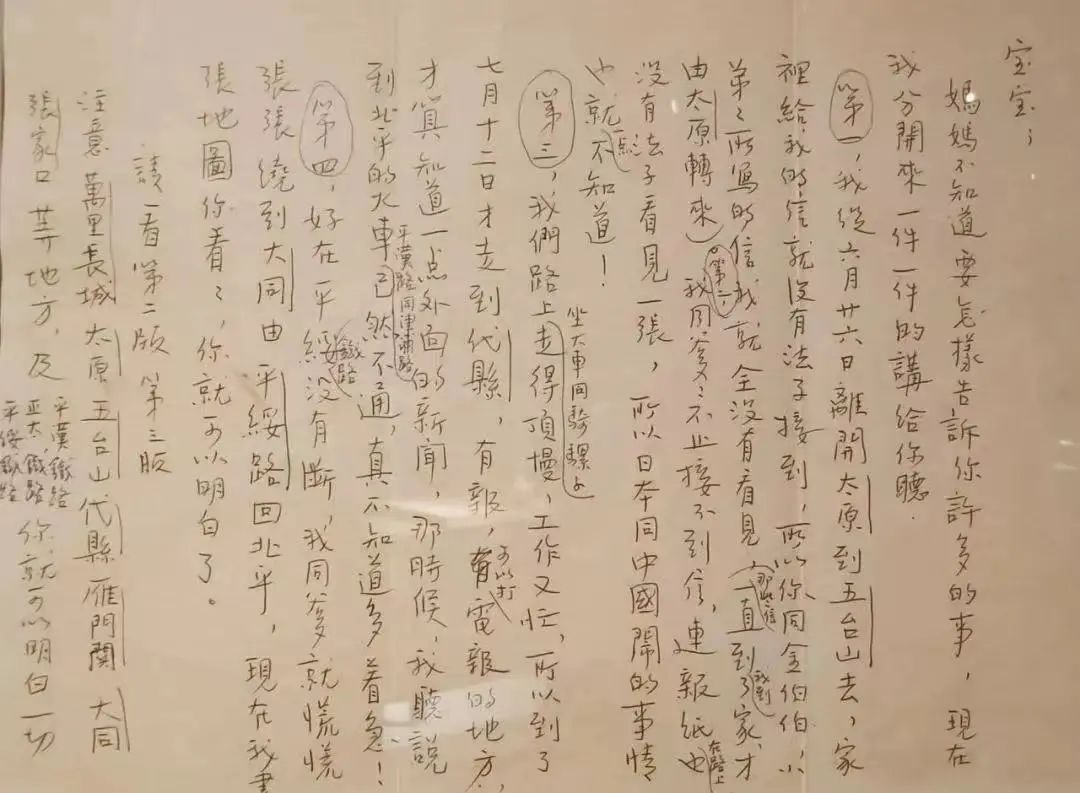 宝宝；
媽媽不知道要怎樣告訴你許多的事，現在
我分開來一件一件的講給你聽.
第一，我從六月廿六日離開太原到五台山去，家
裡給我的信就沒有法子接到，所以你同金伯伯，小
弟弟所寫的信我就全没有看見（那些信一直到我到了家，才
由太原轉來）。第二，我同爹爹不止接不到信，連報紙也在路上
没有法子看見一張，所以日本同中國鬧的事情
也就一点不知道！
第三，我們路上坐大車同騎騾子走得頂慢，工作又忙，所以到了
七月十二日才走到代縣，有報，可以打電報的地方，
才算知道一点外面的新聞，那時候，我聽說
到北平的火車，平漢路同津浦路已然不通，真不知道多着急！
第四，好在平綏鐵路没有斷，我同爹爹就慌慌
張張繞到大同由平綏路回北平，現在我畫
張地圖你看看，你就可以明白了。
請一看第二版 第三版
注意萬里長城 太原 五台山 代縣 雁門關 大同
張家口等地方，及平漢鐵路 正太鐵路 平綏鐵路 你就可以明白一切